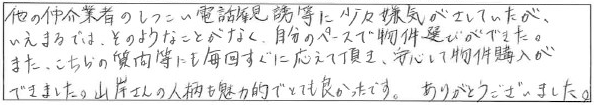 他の仲介業者のしつこい電話勧誘等に少々嫌気がさしていたが、
いえまるでは、そのようなことがなく、自分のペースで物件選びができた。
また、こちらの質問等にも毎回すぐに応えて頂き、安心して物件購入が
できました。山岸さんの人柄も魅力的でとても良かったです。 ありがとうございました。